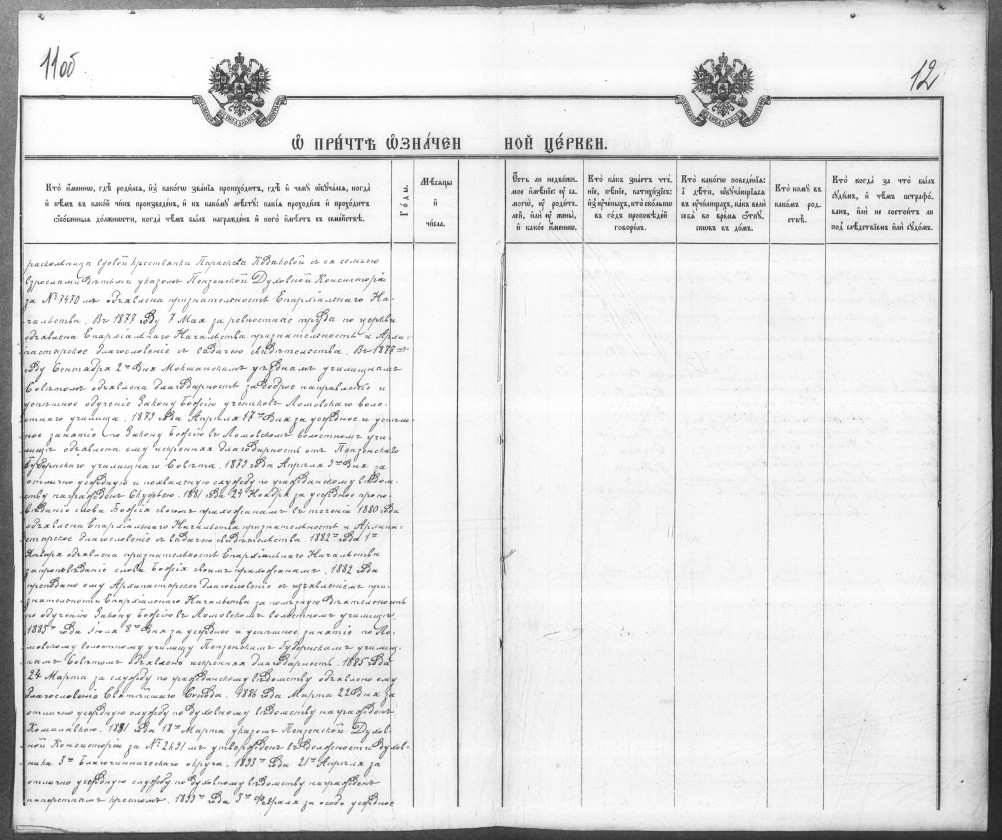 11об
12
Ѡ ПРИ́ЧТѢ Ѡ҆ЗНА́ЧЕННОЙ ЦЕ́РКВИ.
Кто и҆́менно, гдѣ роди́лся, и҆з̾ како́гѡ зва́нїѧ происхо́дитъ, гдѣ и҆ чемꙋ̀ ѡ҆бꙋча́лся, когда̀
и҆ кѣ́мъ въ како́й чи́нъ произведе́нъ, и҆ къ како́мꙋ мѣ́стꙋ; какі̑ѧ проходи́лъ и҆ прохо́дитъ
ѡ҆со́бенныѧ до́лжности, когда̀ чѣ́мъ бы́лъ награжде́нъ и҆ кого̀ и҆мѣ́етъ въ семе́йствѣ.
Го́ды.
Мѣ́сѧцы
и҆
чи́сла.
Е҆́сть ли недви́жи-
мое и҆мѣ́нїе: ᲂу҆ са-
могѡ̀, ᲂу҆ роди́те-
лей, и҆лѝ ᲂу҆ жены̀,
и҆ како́е и҆́менно.
Кто ка́къ зна́етъ чте́-
нїе, пѣ́нїе, катихи́зисъ:
и҆з̾ ᲂу҆че́ныхъ, кто ско́лькѡ
въ го́дъ про́повѣдей
говори́лъ.
Кто како́гѡ поведе́нїѧ:
и҆ дѣ́ти, ѡ҆бꙋча́ющїѧсѧ
въ ᲂу҆чи́лищахъ, ка́къ велѝ
себѧ̀ во вре́мѧ ѿпꙋ-
скѡвъ въ до́мъ.
Кто комꙋ̀ въ
како́мъ род-
ствѣ̀.
Кто когда̀ за что̀ бы́лъ
сꙋди́мъ, и҆ тѣ́мъ штрафо́-
ванъ, и҆лѝ не состои́тъ ли
под̾ слѣ́дствїемъ и҆лѝ сꙋдо́мъ.
раскольница вдовой крестьянки Параскева Казаковой съ ея семьею
взрослами дѣтьми указомъ Пензенской Духовной Консисторіи
за № 7470мъ объявлена признательность Епархіальнаго На-
чальства. Въ 1877 году 7 Мая за ревностные труды по церкви
объявлена Епархіальнаго Начальства признательность и Архи-
пастырское благословеніе съ выдачею свидѣтельства. Въ 1877мъ
году Сентября 2го дня Мокшанскимъ уѣзднымъ училищнымъ
Совѣтомъ объявлена благодарность за доброе направленіе и
успѣшное обученіе Закону Божію учениковъ Ломовскаго воло-
стнаго училища. 1879 года Апрѣля 17го дня за усердное и успѣш-
ное занятіе по Закону Божію въ Ломовскомъ волостномъ учи-
лищѣ объявлена ему искренняя благодарность отъ Пензенскаго
Губернскаго училищнаго Совѣта. 1879 года Апрѣля 3го дня за
отлично усердную и похвальную службу по гражданскому вѣдом-
ству награжденъ скуфьею. 1881 года 24 Ноября за усердное пропо-
вѣданіе слова Божія своимъ прихожанамъ въ теченіи 1880 года
объявлена Епархіальнаго Начальства признательность и Архипа-
стырское благословеніе съ выдачею свидѣтельства. 1882го года 1го
Января объявлена признательность Епархіальнаго Начальства
за проповѣданіе слова Божія своимъ прихожанамъ. 1882 года
преподано ему Архипастырское благословеніе съ изъявленіемъ при-
знательности Епархіальнаго Начальства за полезную дѣятельность
по обученію Закону Божію въ Ломовскомъ волостномъ училищѣ.
1885го года Іюля 8го дня за усердное и успѣшное занятіе по Ло-
мовскому волостному училищу Пензенскимъ Губернскимъ училищ-
нымъ Совѣтомъ объявлена искренняя благодарность. 1885 года
24 Марта за службу по гражданскому вѣдомству объявлено ему
благословеніе Святѣйшаго Синода. 1886 года Марта 22 дня за
отлично усердную службу по духовному вѣдомству награжденъ
Комилавкою. 1891 года 18го Марта указомъ Пензенской Духов-
ной Консисторіи за № 2691мъ утвержденъ въ должности Духов-
ника 3го Благочинническаго округа. 1893го года 21го Апрѣля за
отлично усердную службу по духовному вѣдомству награжденъ
наперстнымъ крестомъ. 1893го года 3го Февраля за особо усердное